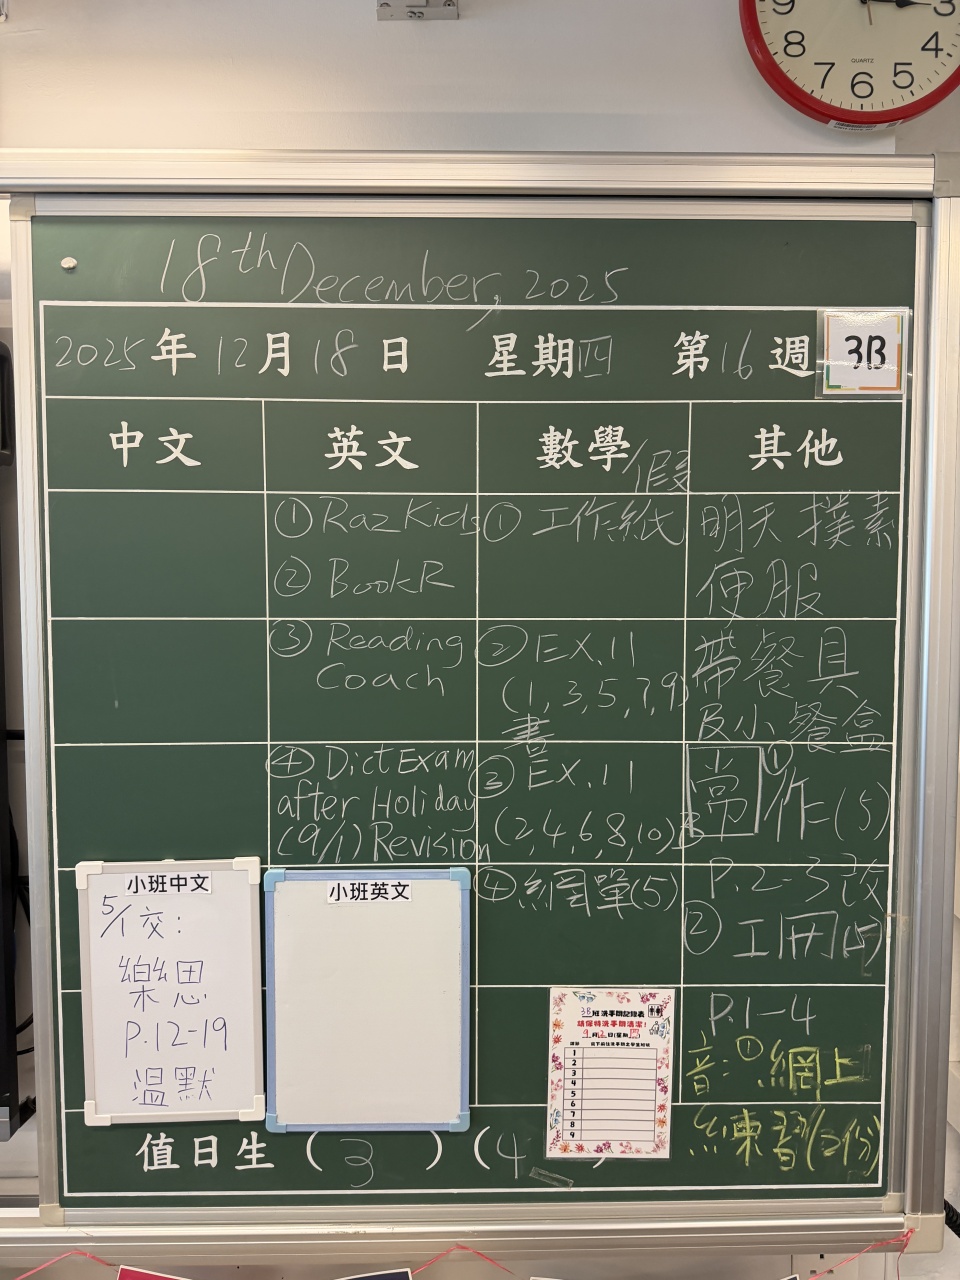 9
3
8
4
QUARTZ
7
6
5
18th December, 2025
2025年12月18日 星期四 第16週 3B
中文
英文
數學/假
其他
① Raz Kids
② BookR
① 工作紙
明天 樸素
便服
③ Reading
Coach
② EX.11
(1,3,5,7,9)
書
帶餐具
及小餐盒
④ Dict Exam
after Holiday
(9/1) Revision
③ EX.11
(2,4,6,8,10)B
常 ①作(5)
P.2-3改
④ 網單(5)
② 工冊(5)
P.1-4
音:①網上
練習(3份)
小班中文
5/1交:
樂思
P.12-19
溫默
小班英文
3B班洗手間記錄表
請保持洗手間清潔!
1
2
3
4
5
6
7
8
9
值日生 (3) (4)